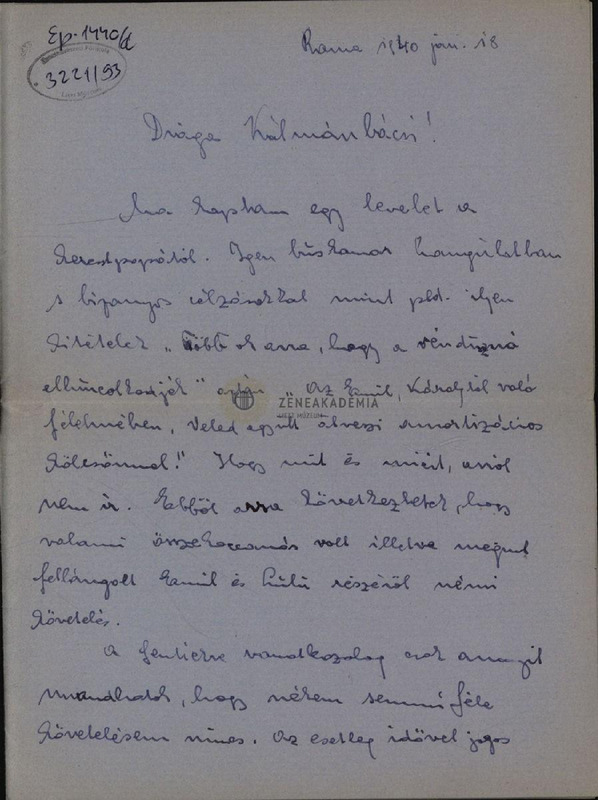 Ep. 1440/d
3221/93
Roma 1940 jan. 18
Drága Kálmánbácsi!
Ma kaptam egy levelet a
keresztpapától. Igen búskomor hangulatban
s bizonyos célzásokkal mint pld. ilyen
kitételek „Több ok arra, hogy a
ZENEAKADÉMIA
LISZT MÚZEUM
Az Emil, Károlytól való
félelmében, Veled együtt átveszi amortizációs
kölcsönnel!" Hogy mit és miért, arról
nem ír. Ebből arra következtetek, hogy
valami összekoccanás volt illetve megint
fellángolt Emil és Lulu részéről némi
követelés.
A fentiekre vonatkozolag csak annyit
mondhatok, hogy nékem semmi féle
követelésem nincs. Az esetleg idővel jogos